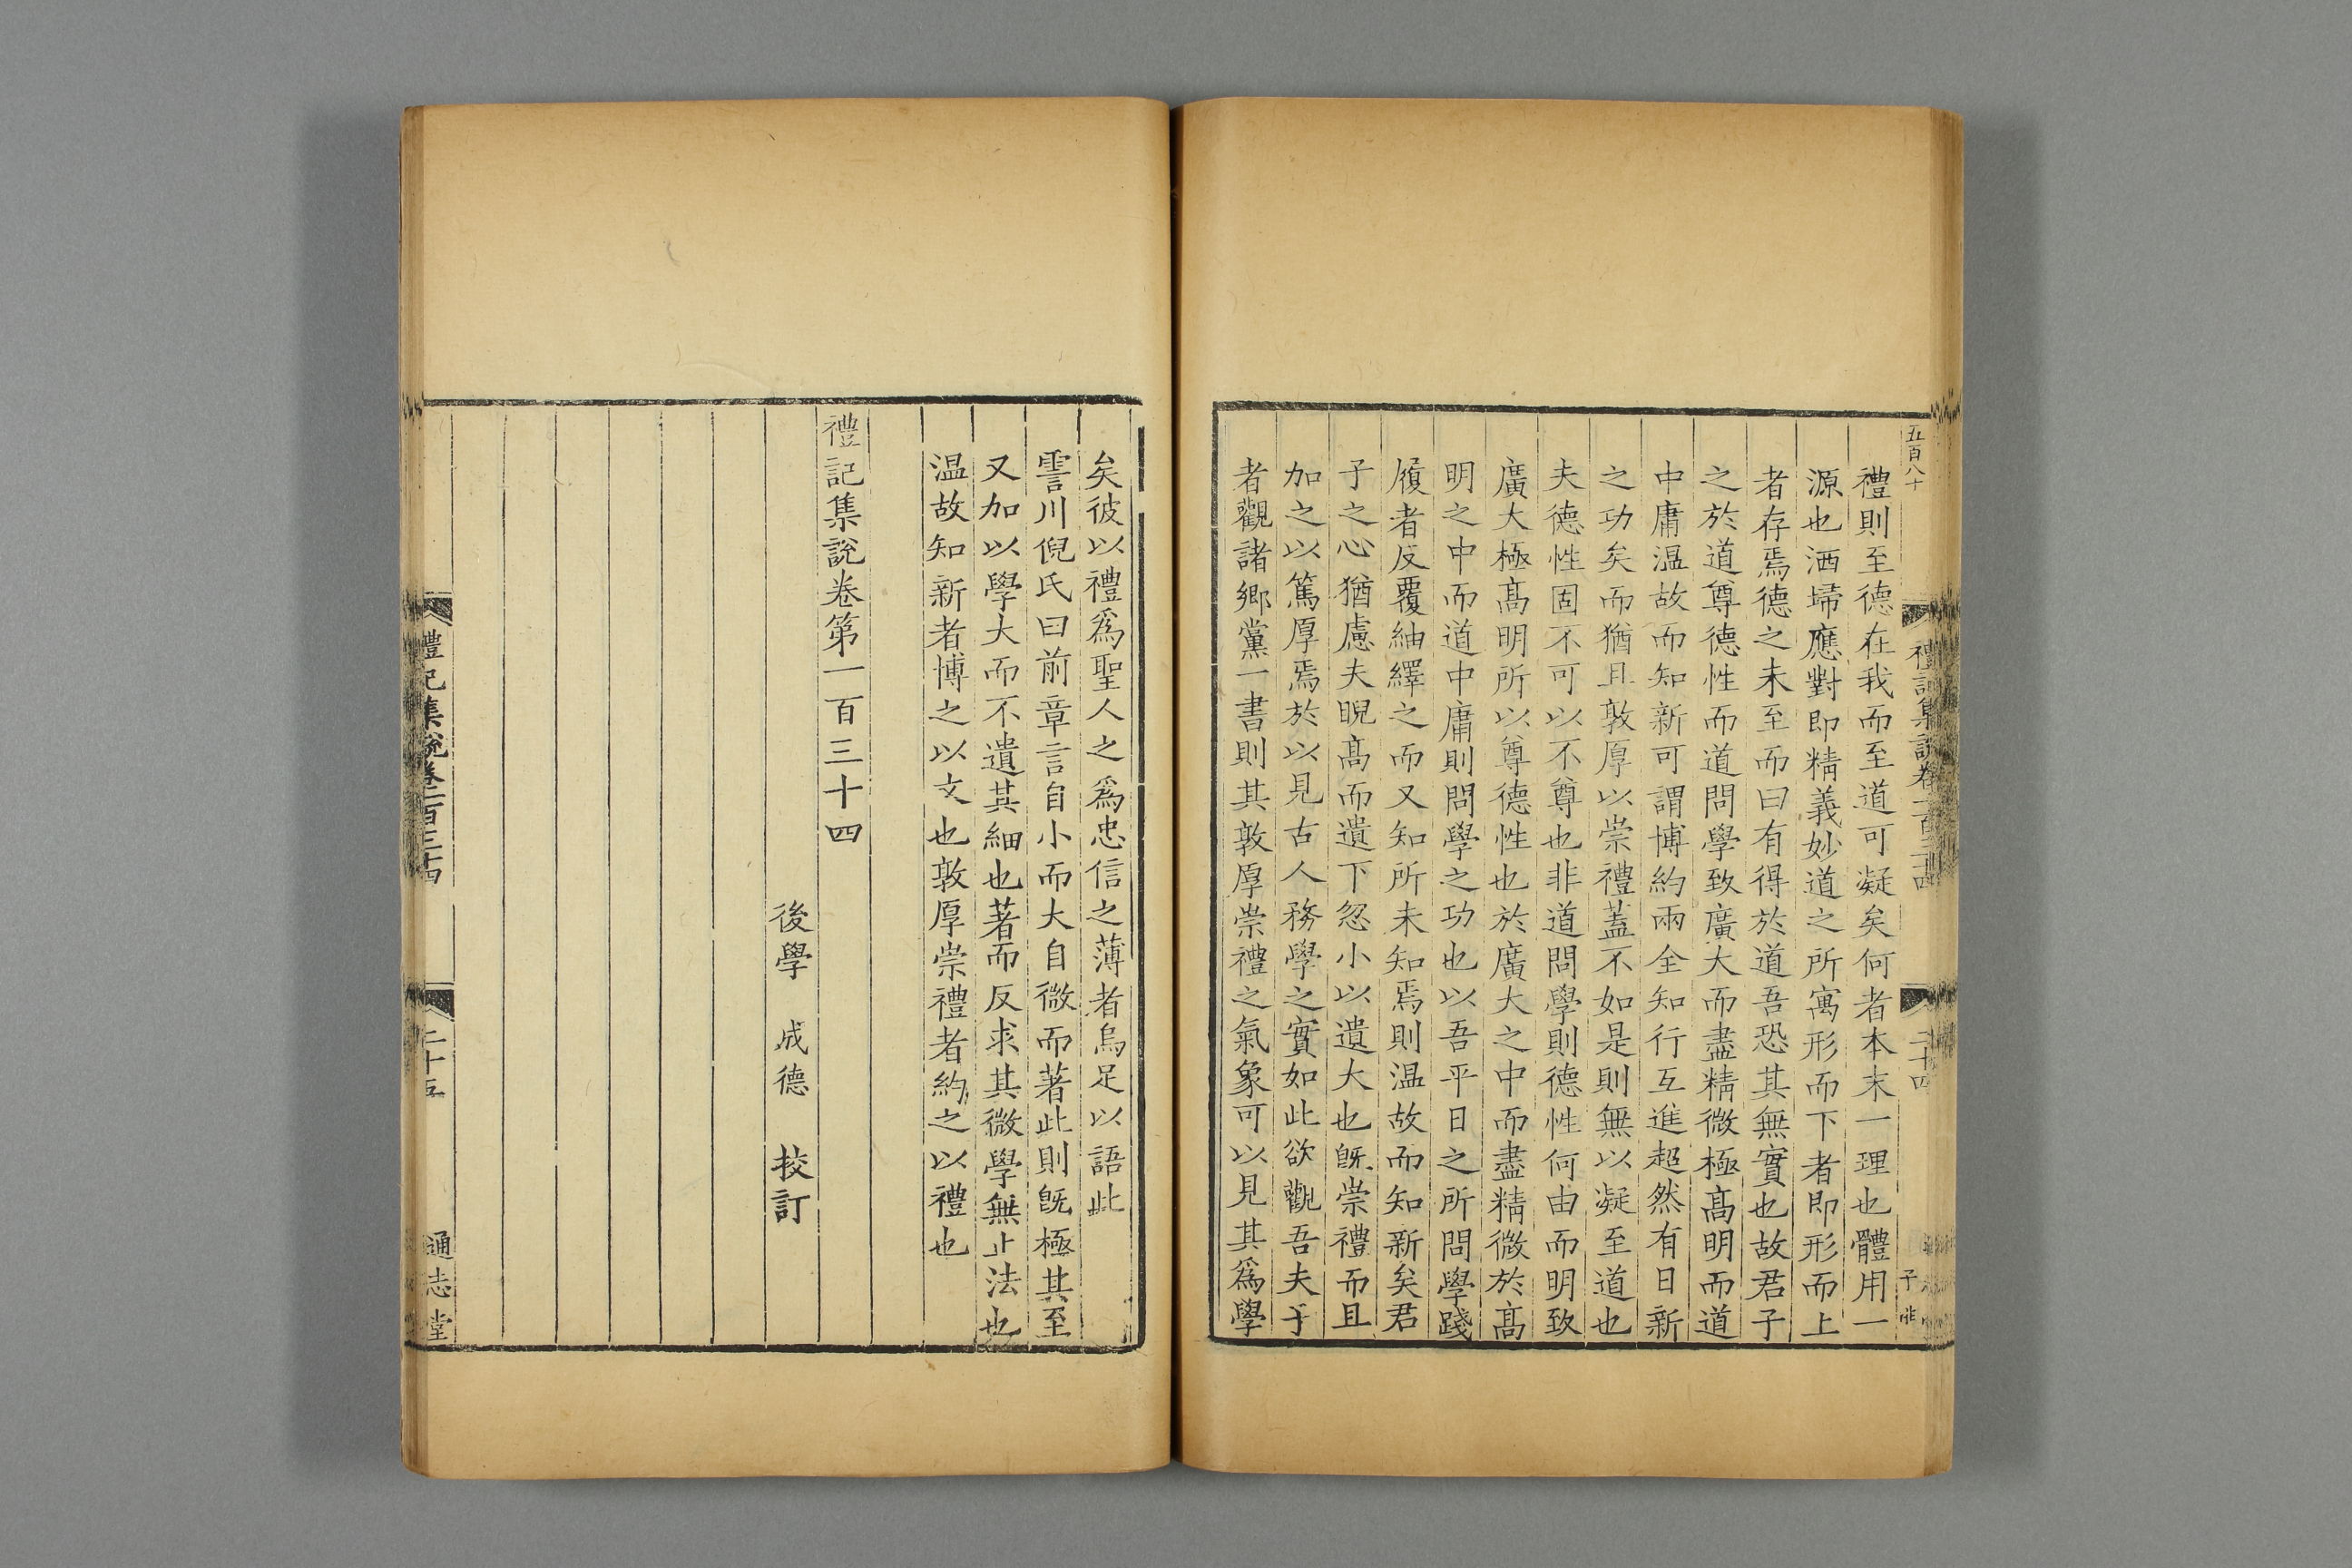 五百八十
禮記集說卷一百三十四
二十四
禮則至德在我而至道可凝矣何者本末一理也體用一
源也洒埽應對即精義妙道之所寓形而下者即形而上
者存焉德之未至而曰有得於道吾恐其無實也故君子
之於道尊德性而道問學致廣大而盡精微極髙明而道
中庸温故而知新可謂博約兩全知行互進超然有日新
之功矣而猶且敦厚以崇禮蓋不如是則無以凝至道也
夫德性固不可以不尊也非道問學則德性何由而明致
廣大極髙明所以尊德性也於廣大之中而盡精微於髙
明之中而道中庸則問學之功也以吾平日之所問學踐
履者反覆紬繹之而又知所未知焉則温故而知新矣君
子之心猶慮夫睨髙而遺下忽小以遺大也旣崇禮而且
加之以篤厚焉於以見古人務學之實如此欲觀吾夫子
者觀諸鄉黨一書則其敦厚崇禮之氣象可以見其爲學
矣彼以禮爲聖人之爲忠信之薄者烏足以語此
霅川倪氏曰前章言自小而大自微而著此則旣極其至
又加以學大而不遺其細也著而反求其微學無止法也
温故知新者博之以文也敦厚崇禮者約之以禮也
禮記集說卷第一百三十四
後學 成德 挍訂
禮記集說卷一百三十四
二十五
通志堂